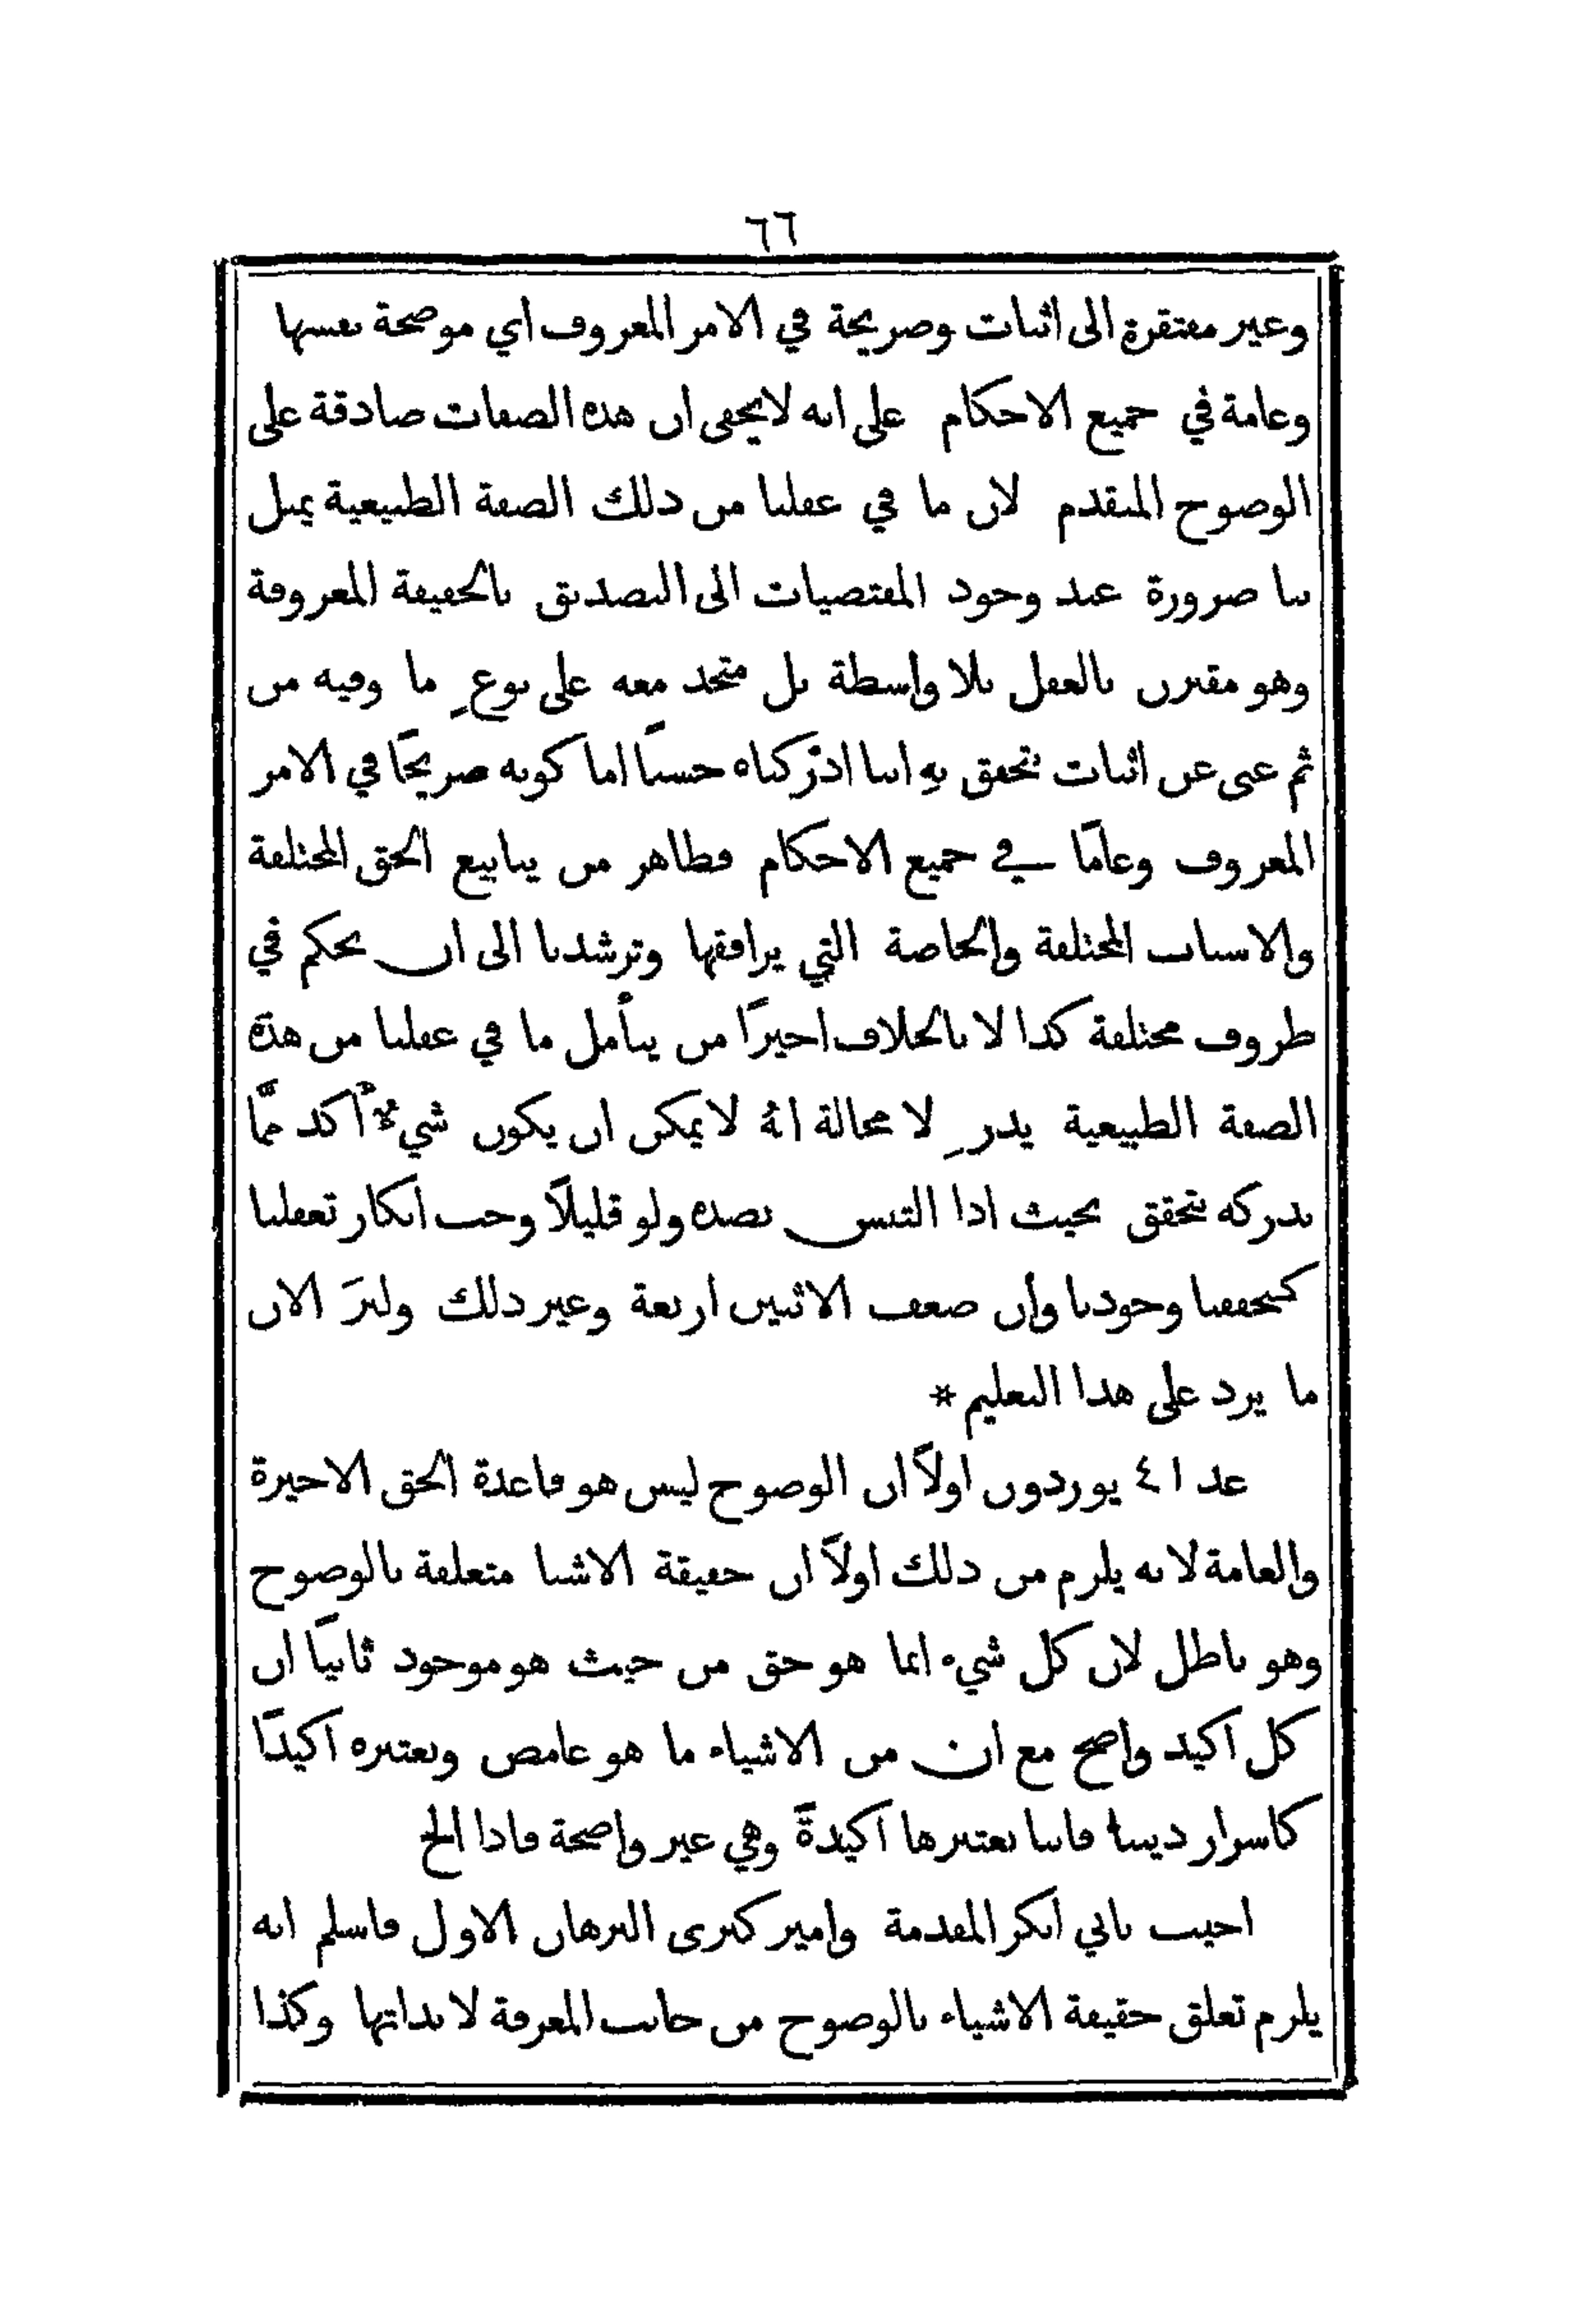 ٦٦
وغير مفتقرة الى اثبات وصريحة في الامر المعروف اي موضحة نفسها
وعامة في جميع الاحكام على انه لا يخفى ان هذه الصفات صادقة على
الوضوح المتقدم لان ما في عقلنا من ذلك الصفة الطبيعية يميل
بنا ضرورة عند وجود المقتضيات الى التصديق بالحقيقة المعروفة
وهو مقترن بالعقل بلا واسطة بل متحد معه على نوعٍ ما وفيه من
ثم غنى عن اثبات نتحقق بهِ اننا ادركناه حسنًا اما كونه صريحًا في الامر
المعروف وعامًا في جميع الاحكام فظاهر من ينابيع الحق المختلفة
والاسباب المختلفة والخاصة التي يرافقها وترشدنا الى ان نحكم في
ظروف مختلفة كذا لا بالخلاف اخيرًا من يتأمل ما في عقلنا من هذه
الصفة الطبيعية يدرِ لا محالة انهُ لا يمكن ان يكون شيءٌ آكد ممَّا
ندركه بتحقق بحيث اذا التبس بضده ولو قليلاً وجب انكار تعقلنا
كتحققنا وجودنا وأن ضعف الاثنين اربعة وغير ذلك ولنرَ الان
ما يرد على هذا التعليم *
عد ٤١ يوردون اولاً ان الوضوح ليس هو قاعدة الحق الاخيرة
والعامة لانه يلزم من ذلك اولاً ان حقيقة الاشيا متعلقة بالوضوح
وهو باطل لان كل شيء انما هو حق من حيث هو موجود ثانيًا ان
كل اكيد واضح مع ان من الاشياء ما هو غامض ونعتبره اكيدًا
كاسرار ديننا فاننا نعتبرها اكيدةً وهي غير واضحة فاذا الخ
اجيب باني انكر المقدمة واميز كبرى البرهان الاول فاسلم انه
يلزم تعلق حقيقة الاشياء بالوضوح من جانب المعرفة لا بذاتها وكذا